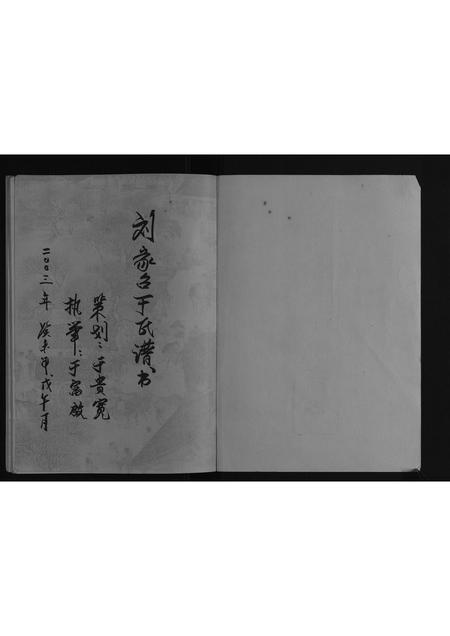 刘家召于氏谱书
策划：于贵宽
执笔：于富啟
二00三年 癸未甲.戊午月